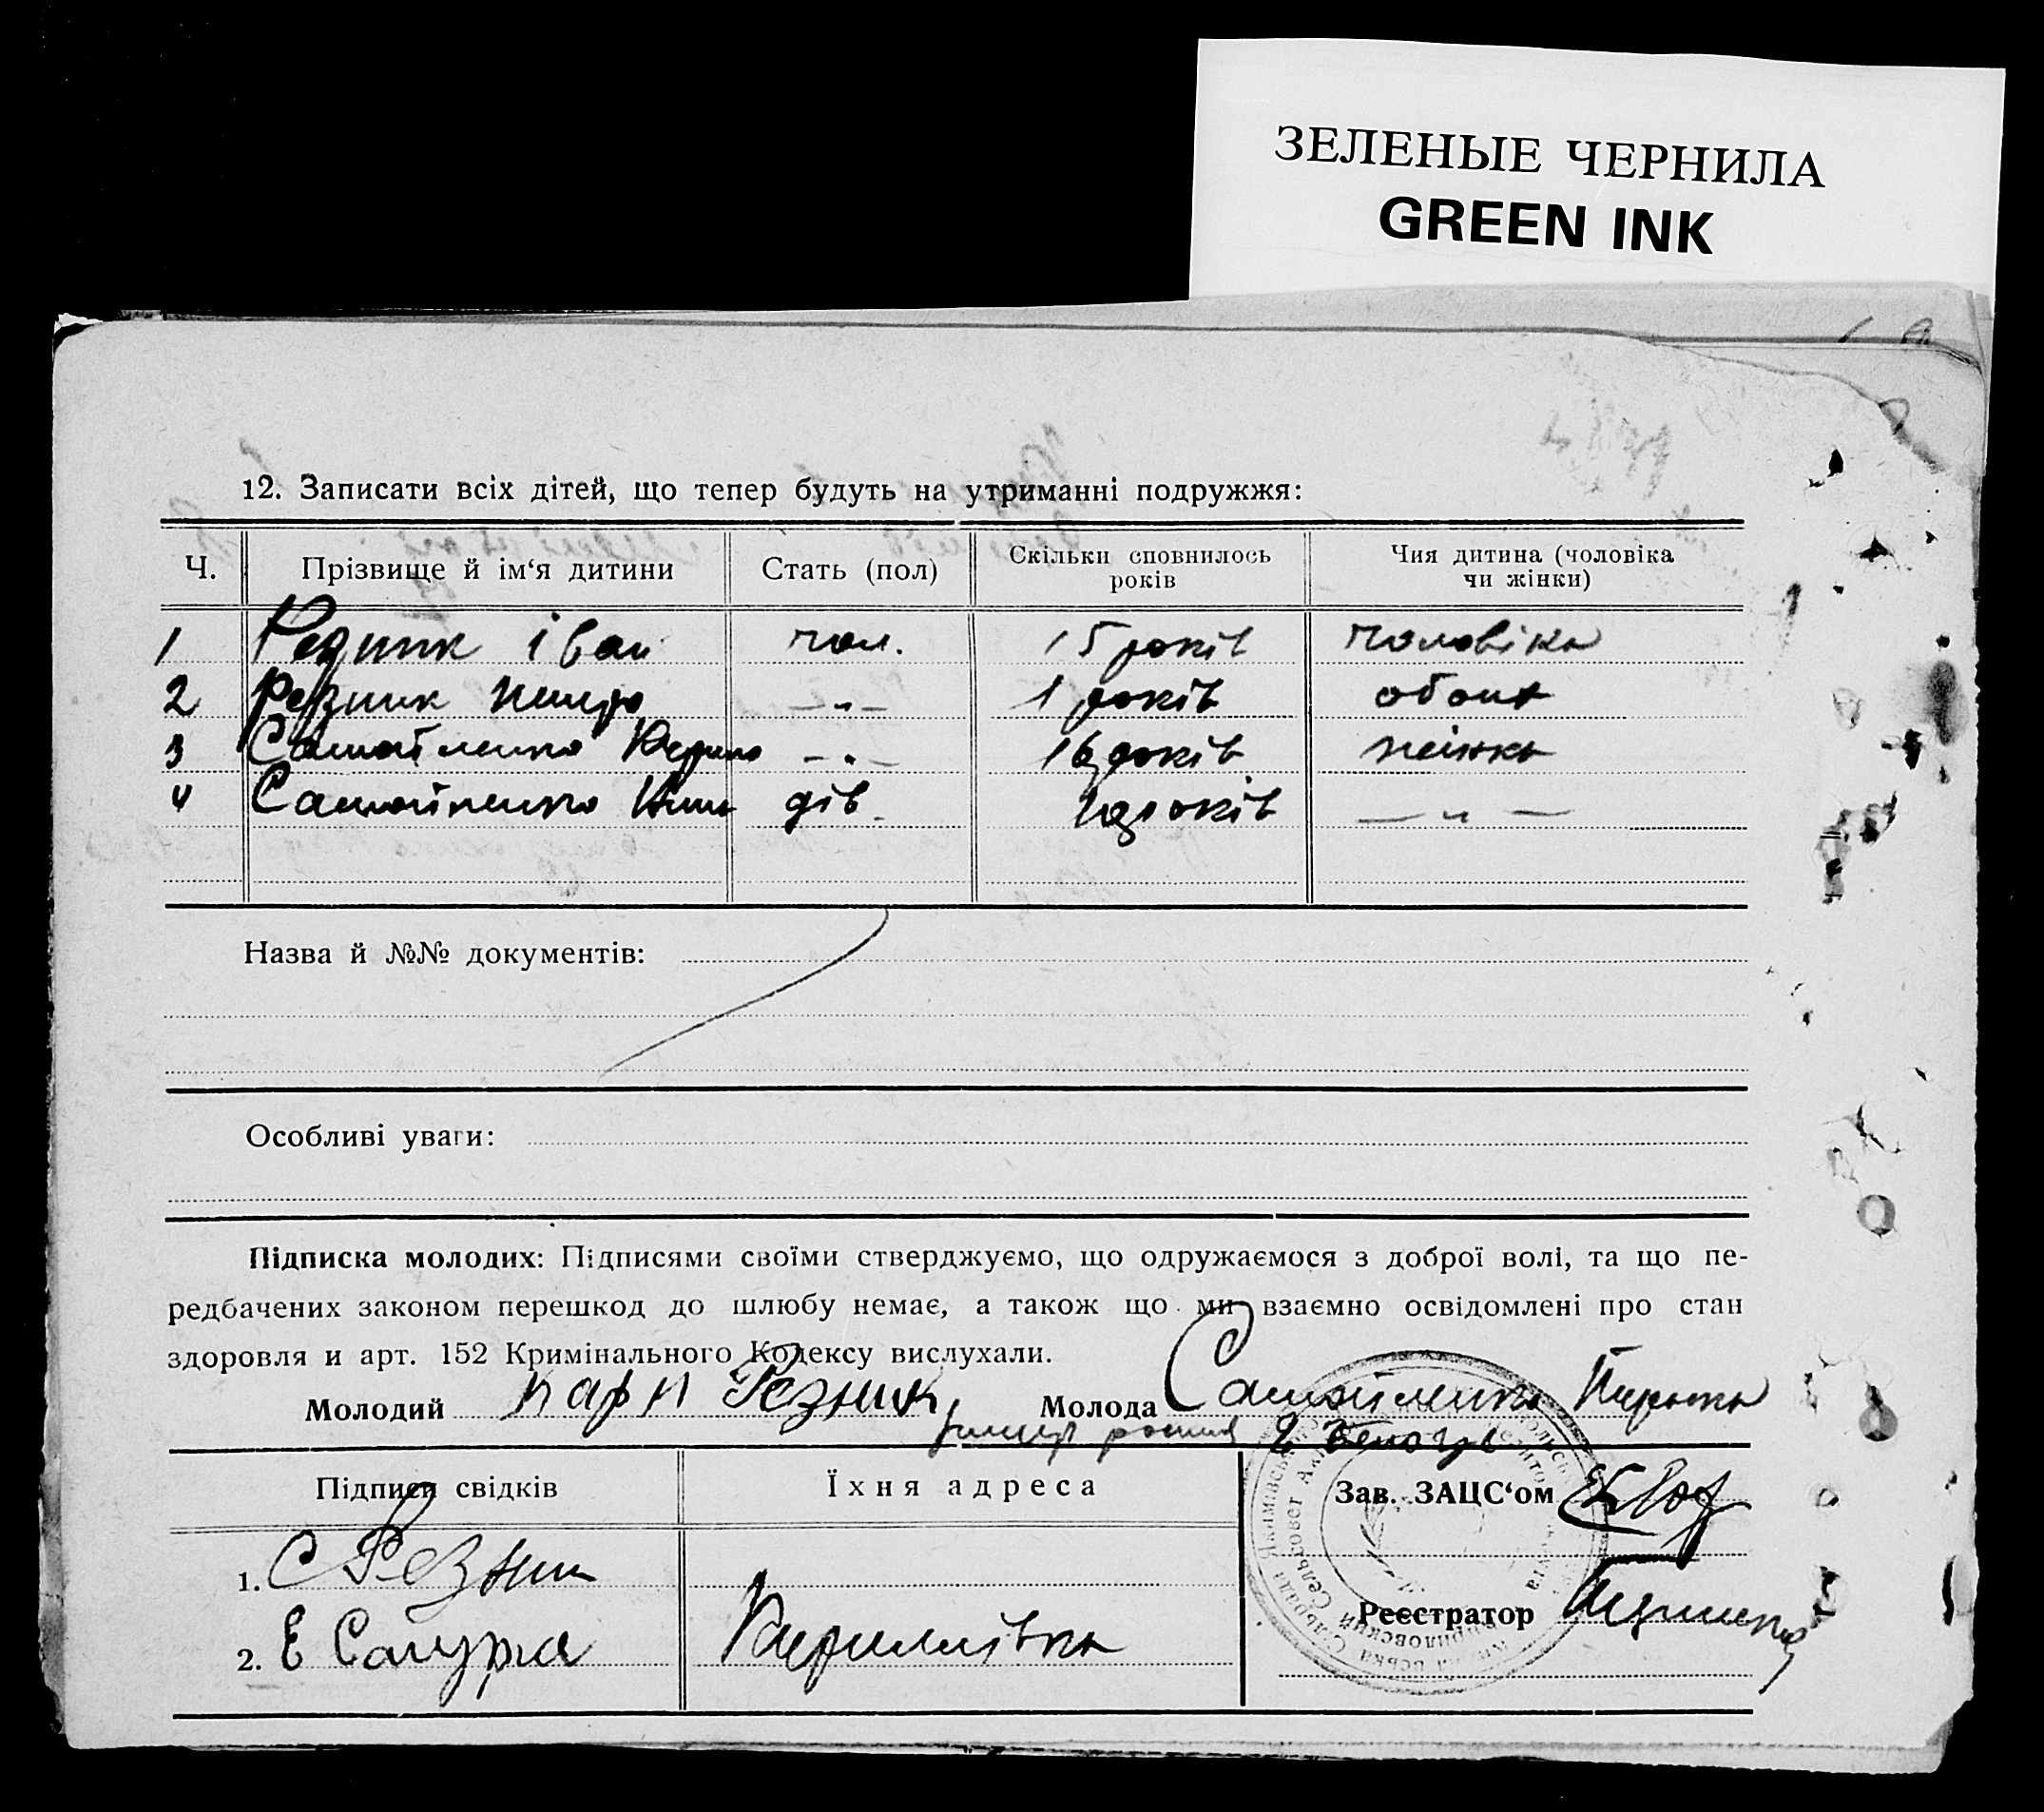 ЗЕЛЕНЫЕ ЧЕРНИЛА
GREEN INK
12. Записати всіх дітей, що тепер будуть на утриманні подружжя:
Ч. Прізвище й ім‘я дитини Стать (пол) Скільки сповнилось років Чия дитина (чоловіка чи жінки)
1 Резник Іван чол. 15 років чоловіка
2 Резник — „ — 1 років обоих
3 Самойленко — „ — 16 років жінки
4 Самойленко дів. років — „ —
Назва й №№ документів:
Особливі уваги:
Підписка молодих: Підписями своїми стверджуємо, що одружаємося з доброї волі, та що пе-
редбачених законом перешкод до шлюбу немає, а також що ми взаємно освідомлені про стан
здоровля и арт. 152 Кримінального Кодексу вислухали.
Молодий Карп Резник Молода Самойленко
Підписи свідків Їхня адреса Зав. ЗАЦС‘ом
1. С Резник
Реєстратор
2. Е Сапура Кириллівка